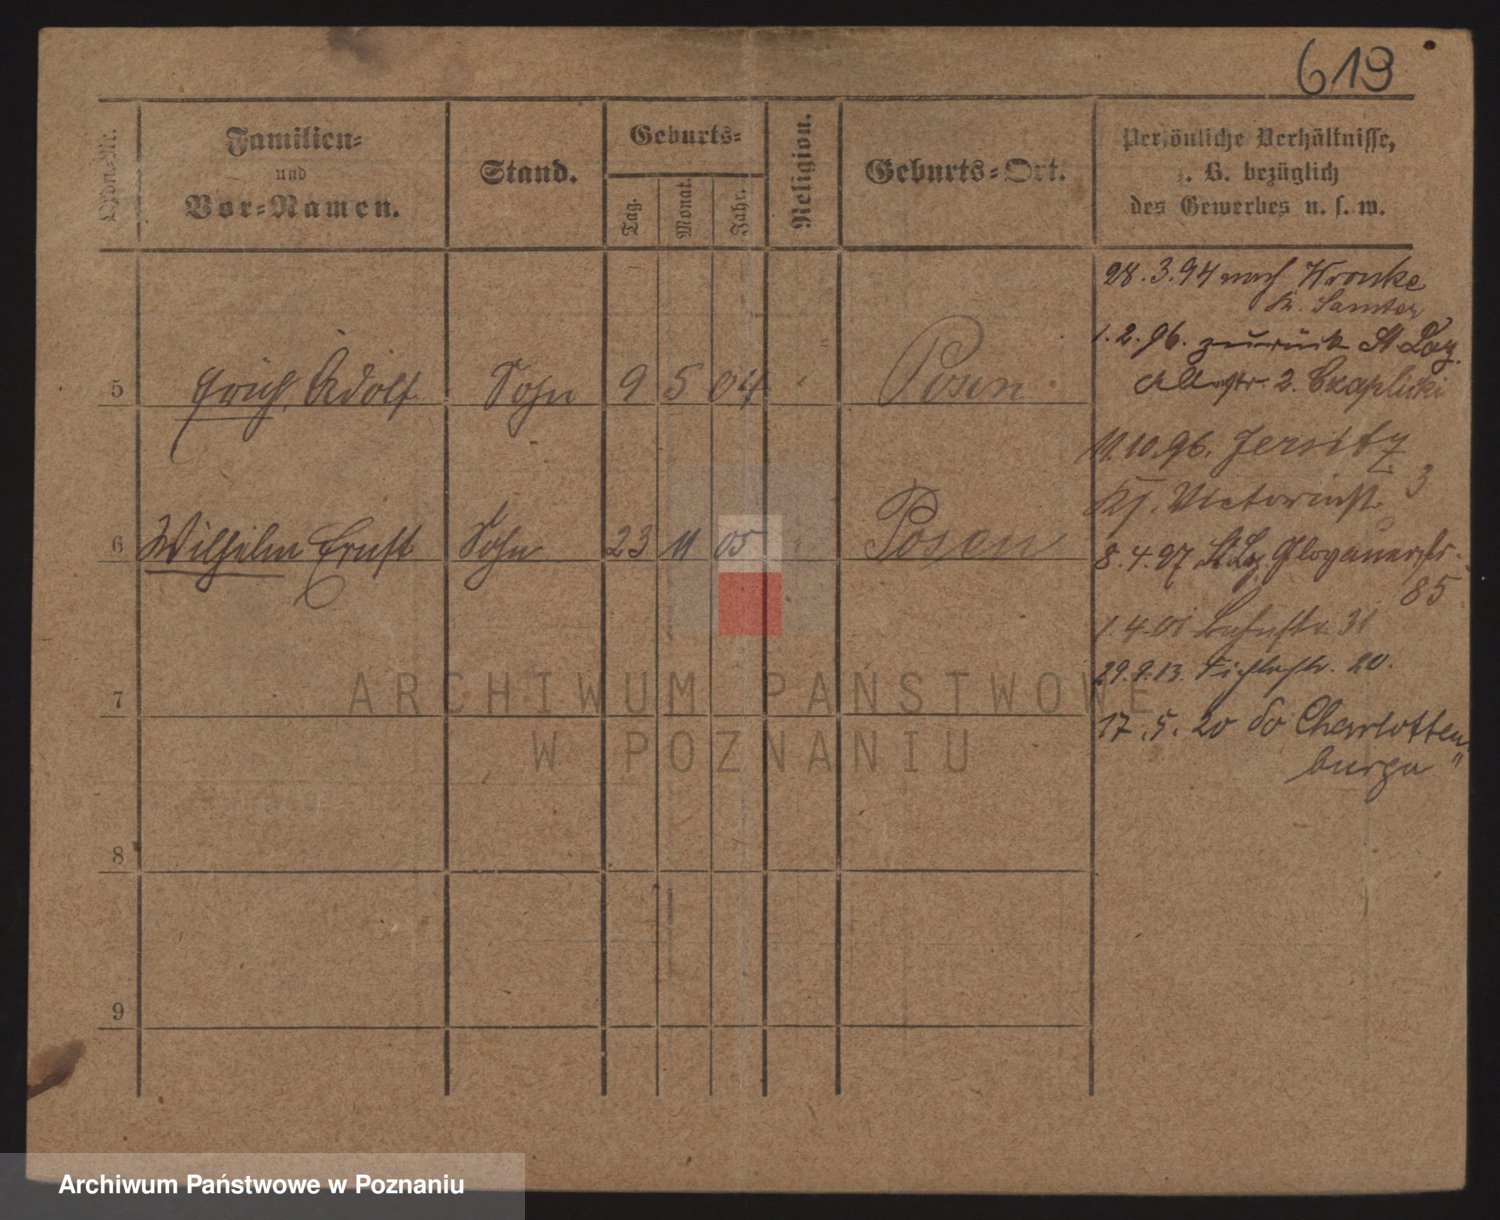 619
Ordn. Nr.
Familien-
und
Vor-Namen.
Stand.
Geburts-
Tag.
Monat.
Jahr.
Religion.
Geburts-Ort.
Persönliche Verhältnisse,
z. B. bezüglich
des Gewerbes u. s. w.
28.3.94 nach Wronke
Kr. Samter
1.2.96. zurück St Laz.
2. Czaplicki
5 Erich Adolf Sohn 9 5 04 " Posen
11.10.96. Jersitz
Victoriastr. 3
6 Wilhelm Ernst Sohn 23 11 05 " Posen
8.4.97 St Lz. Glogauerstr.
85
1.4.01 Bahnstr. 31
29.9.13. Fichtestr. 20.
7
17.5.20 do Charlotten
burga"
8
9
ARCHIWUM PAŃSTWOWE
W POZNANIU
Archiwum Państwowe w Poznaniu